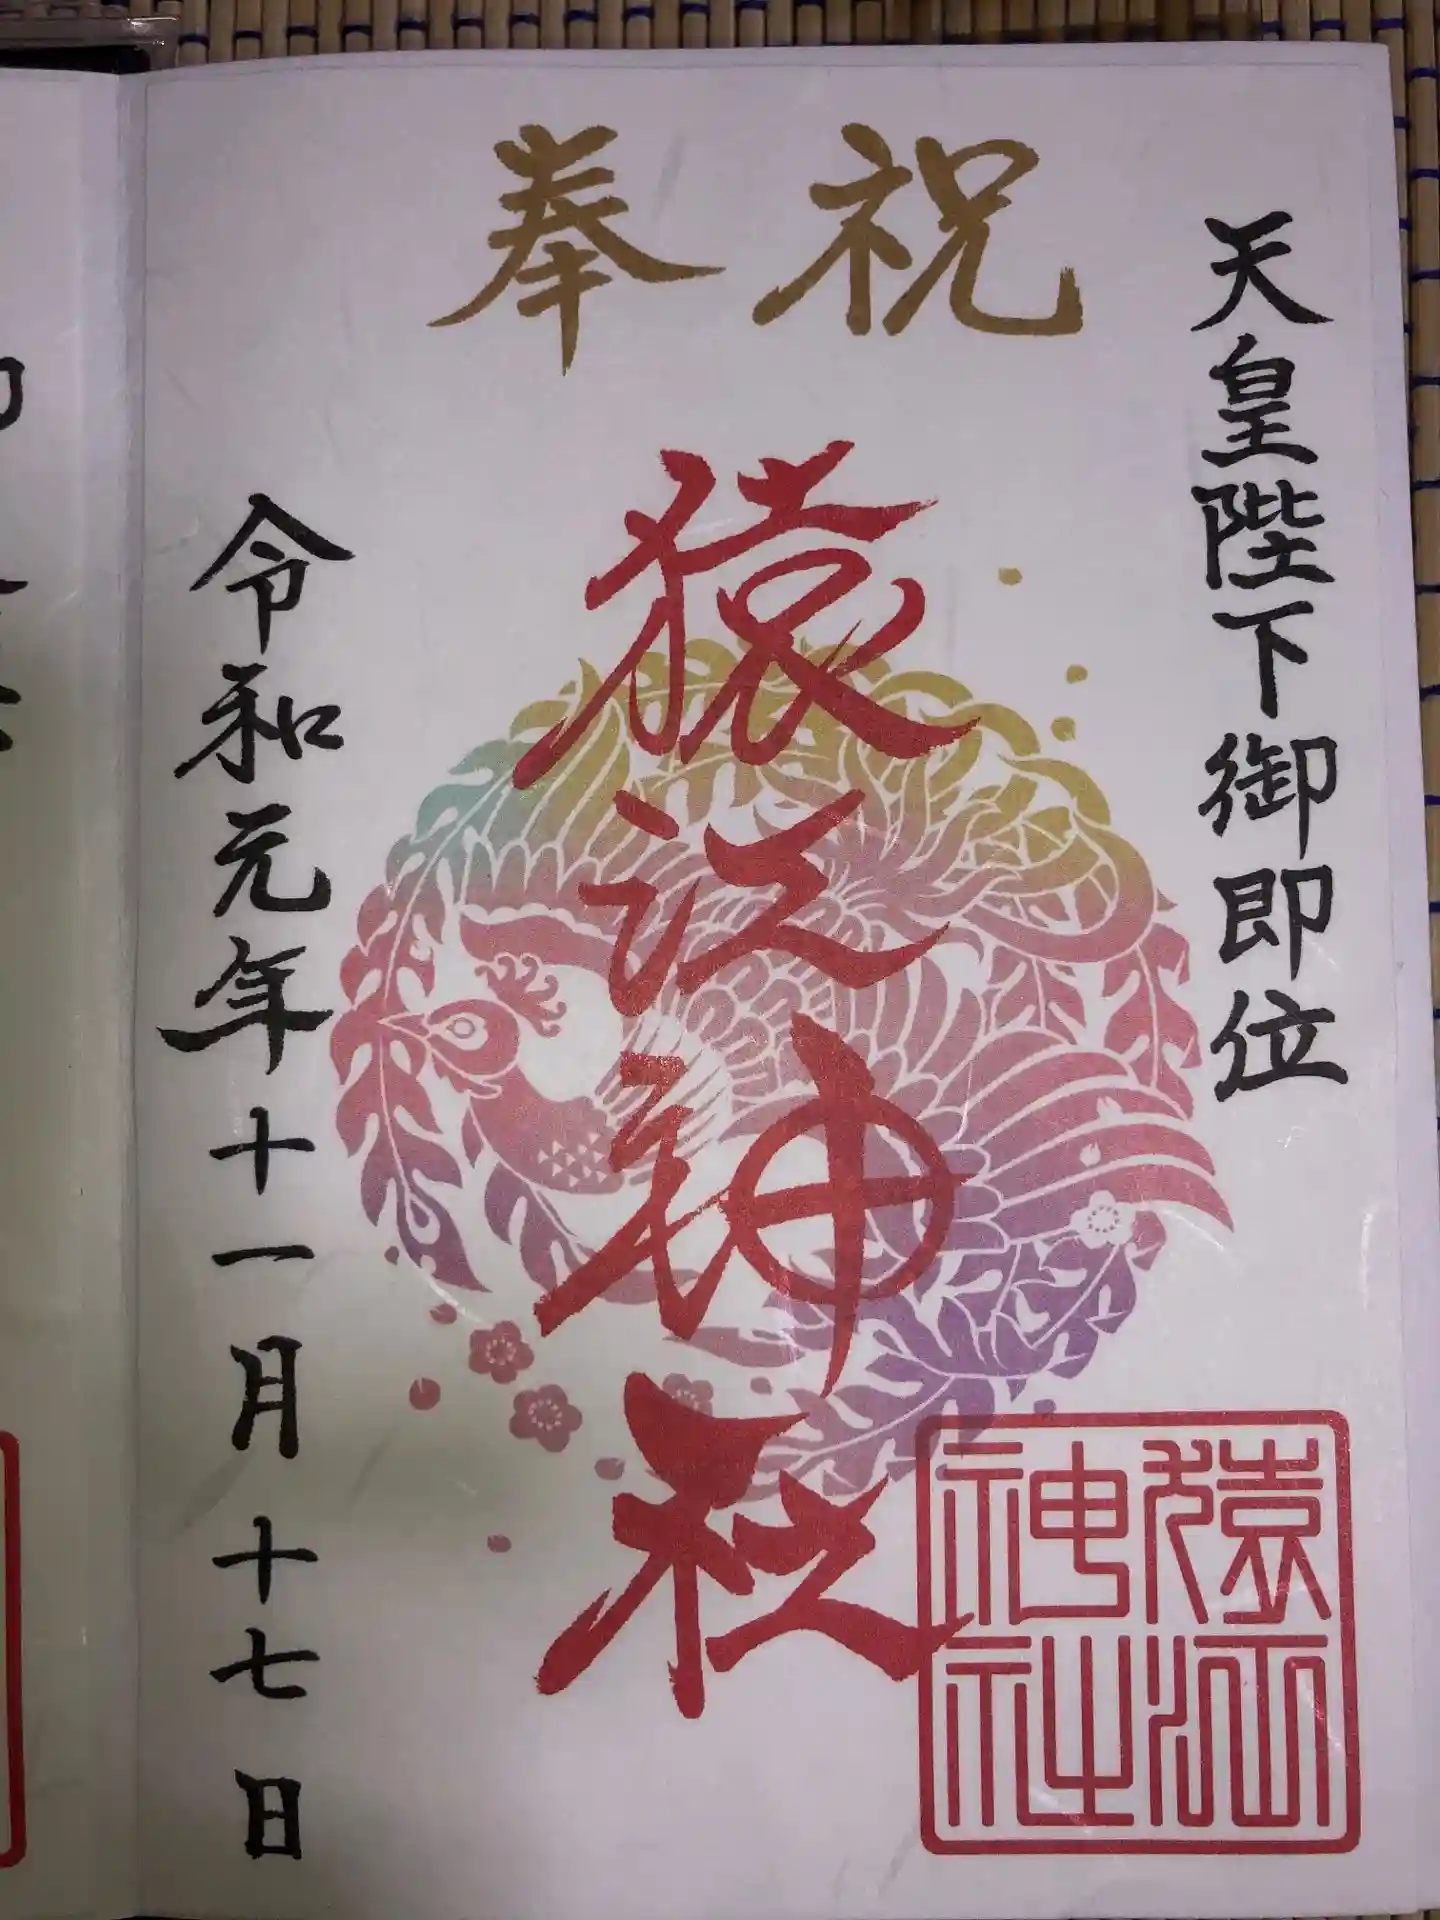 奉祝
天皇陛下御即位
猿江神社
猿江
神社
令和元年十一月十七日